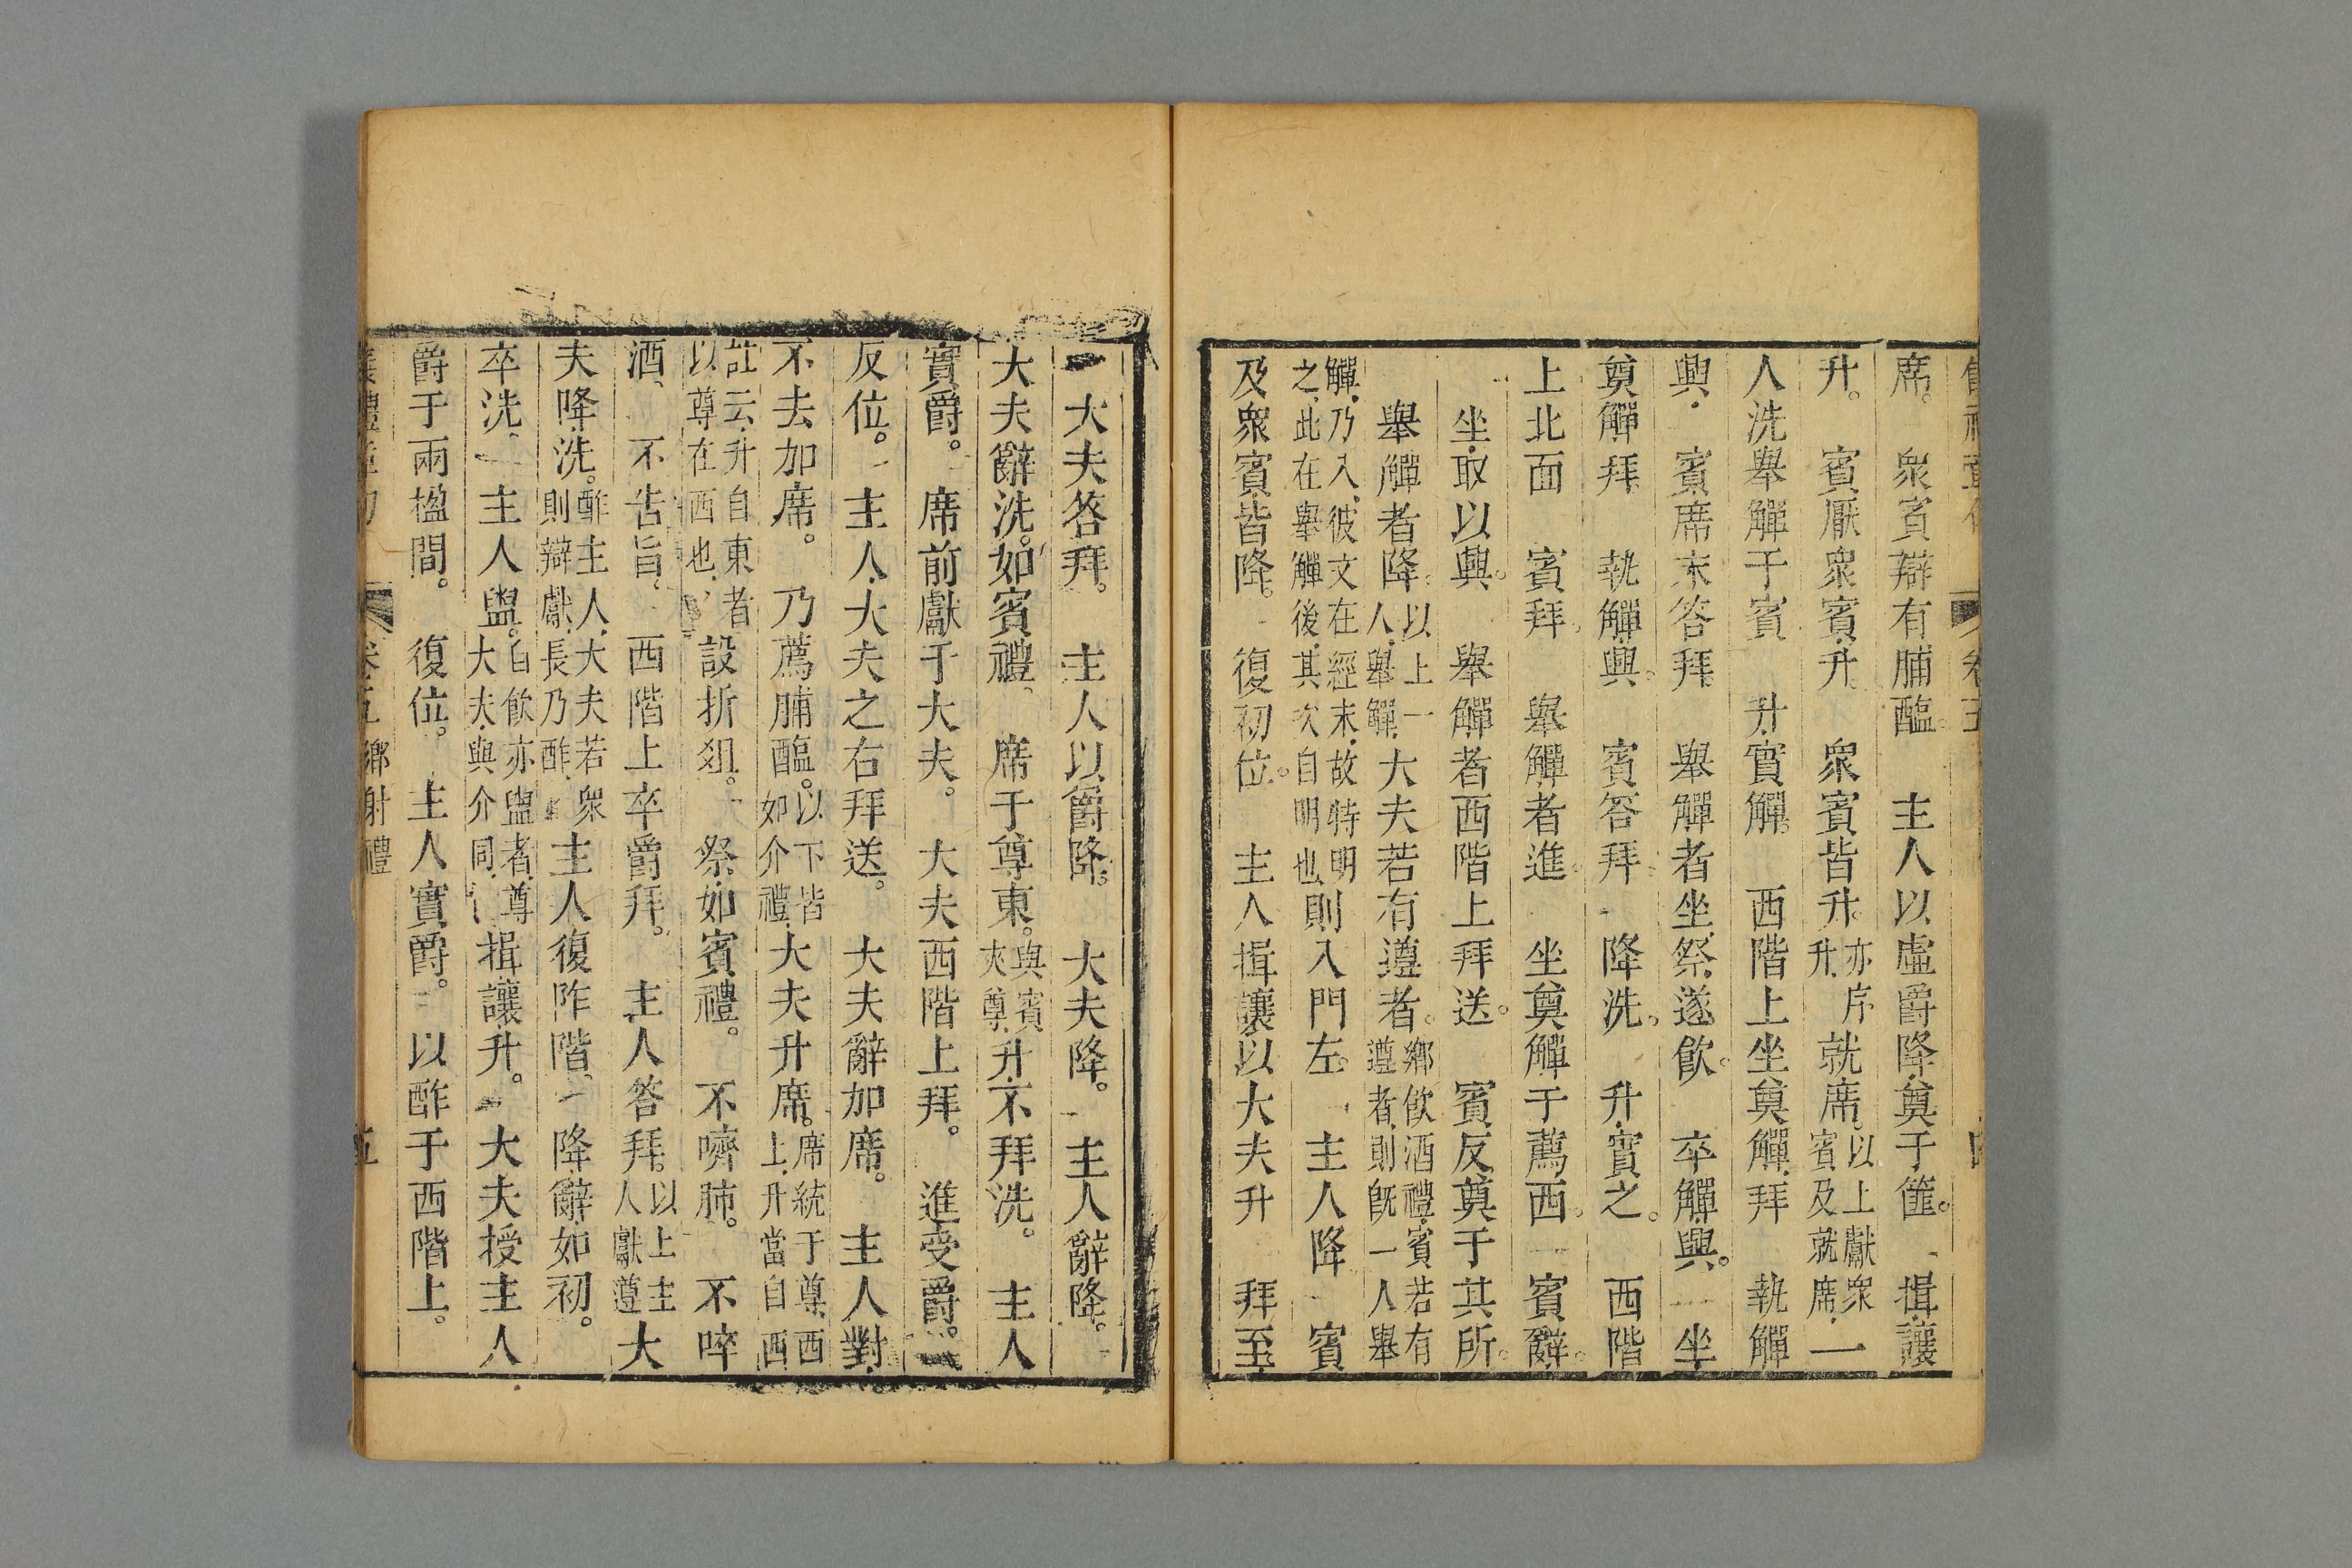 席。衆賓辯有脯醢。主人以虛爵降。奠于篚。揖讓
升。賓厭衆賓升。衆賓皆升。亦序升就席。以上獻衆賓及就席一
人洗舉觶于賓升實觶。西階上坐奠觶拜執觶
興。賓席末答拜。舉觶者坐祭遂飲。卒觶興。坐
奠觶拜執觶興。賓答拜降洗。升實之。西階
上北面賓拜。舉觶者進。坐奠觶于薦西。賓辭。
坐取以興。舉觶者西階上拜送。賓反奠于其所。
舉觶者降。以上一人舉觶大夫若有遵者。鄉飲酒禮賓若有遵者則既一人舉
觶乃入彼文在經末故特明之此在舉觶後其次自明也則入門左。主人降賓
及衆賓皆降。復初位。主人揖讓以大夫升拜至
大夫答拜。主人以爵降。大夫降。主人辭降。
大夫辭洗。如賓禮。席于尊東。與賓夾尊升不拜洗。主人
實爵。席前獻于大夫。大夫西階上拜。進受爵。
反位。主人大夫之右拜送。大夫辭加席。主人對
不去加席。乃薦脯醢。以下皆如介禮大夫升席。席統于尊西上升當自西
註云升自東者以尊在西也設折俎。祭如賓禮。不嚌肺。不啐
酒。不告旨。西階上卒爵拜。主人答拜。以上主人獻遵大
夫降洗。酢主人大夫若衆則辯獻長乃酢主人復阼階。降辭如初。
卒洗主人盥。自飲亦盥者尊大夫與介同揖讓升。大夫授主人
爵于兩楹間。復位。主人實爵。以酢于西階上。
卷五 鄉射禮 五